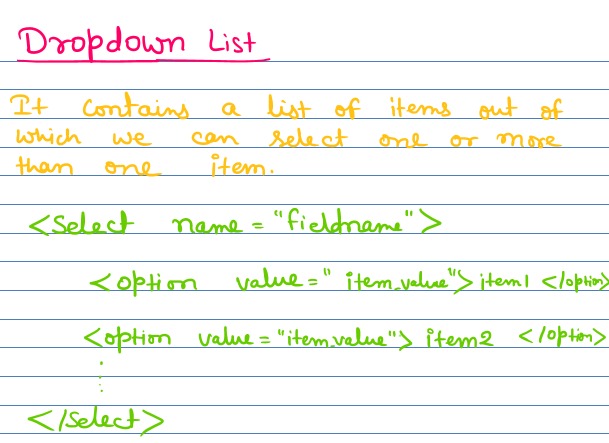 Dropdown List
It contains a list of items out of
which we can select one or more
than one item.
<Select name = "fieldname">
<option value=" item_value"> item1 </option>
<option value = "item_value"> item2 </option>
⋮
</Select>